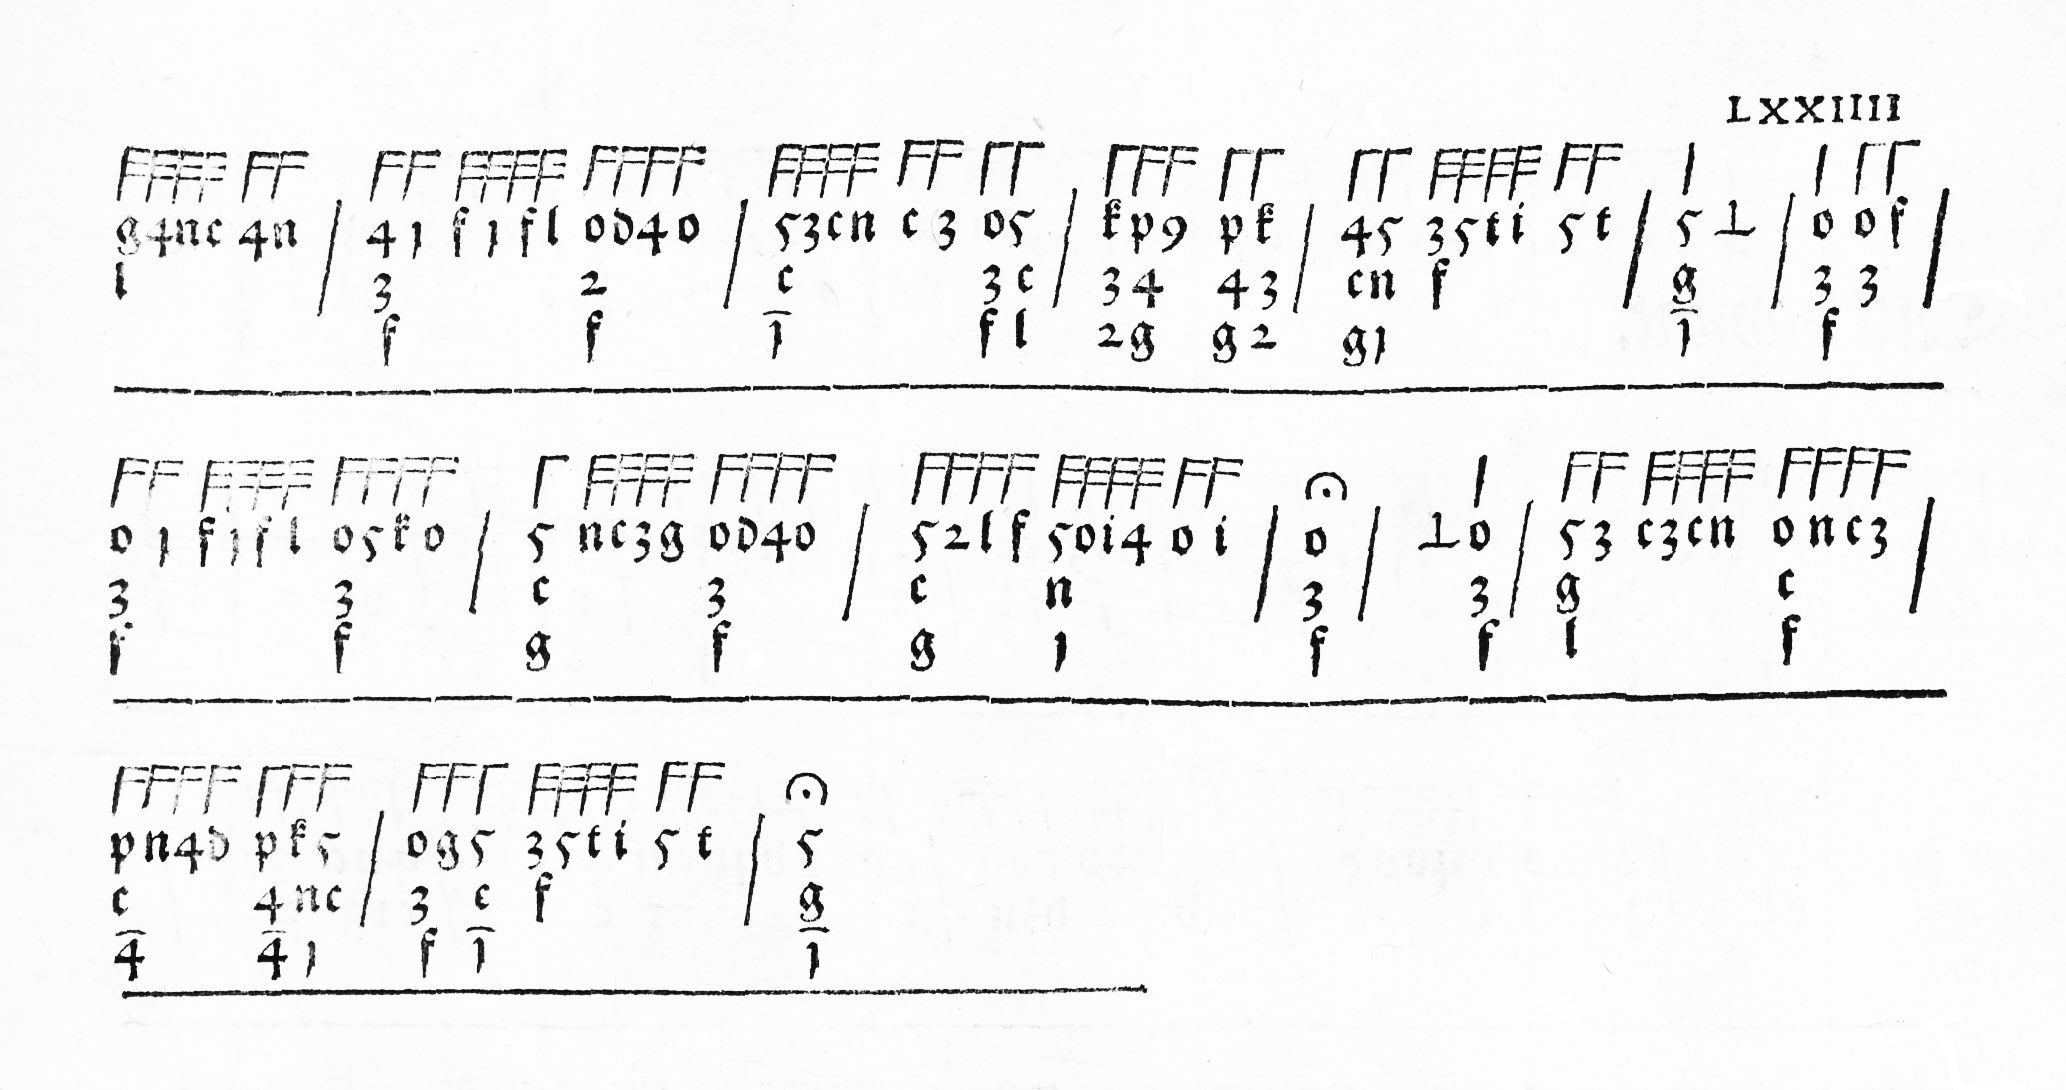 LXXIIII
g4nc 4n / 41 f1fl od4o / 53cn c3 o5 / kp9 pk / 45 35ti 5t / 5 ⊥ / o of /
l 3 2 c 3c 34 43 cn f g 3 3
f f 1 fl 2g g2 g1 1 f
o1 f1fl o5ko / 5 nc3g od4o / 52lf 5oi4 oi / o / ⊥o / 53 c3cn onc3 /
3 3 c 3 c n 3 3 g c
f f g f g 1 f f l f
pn4d pk5 / og5 35ti 5t / 5
c 4nc 3 c f g
4 41 f 1 1